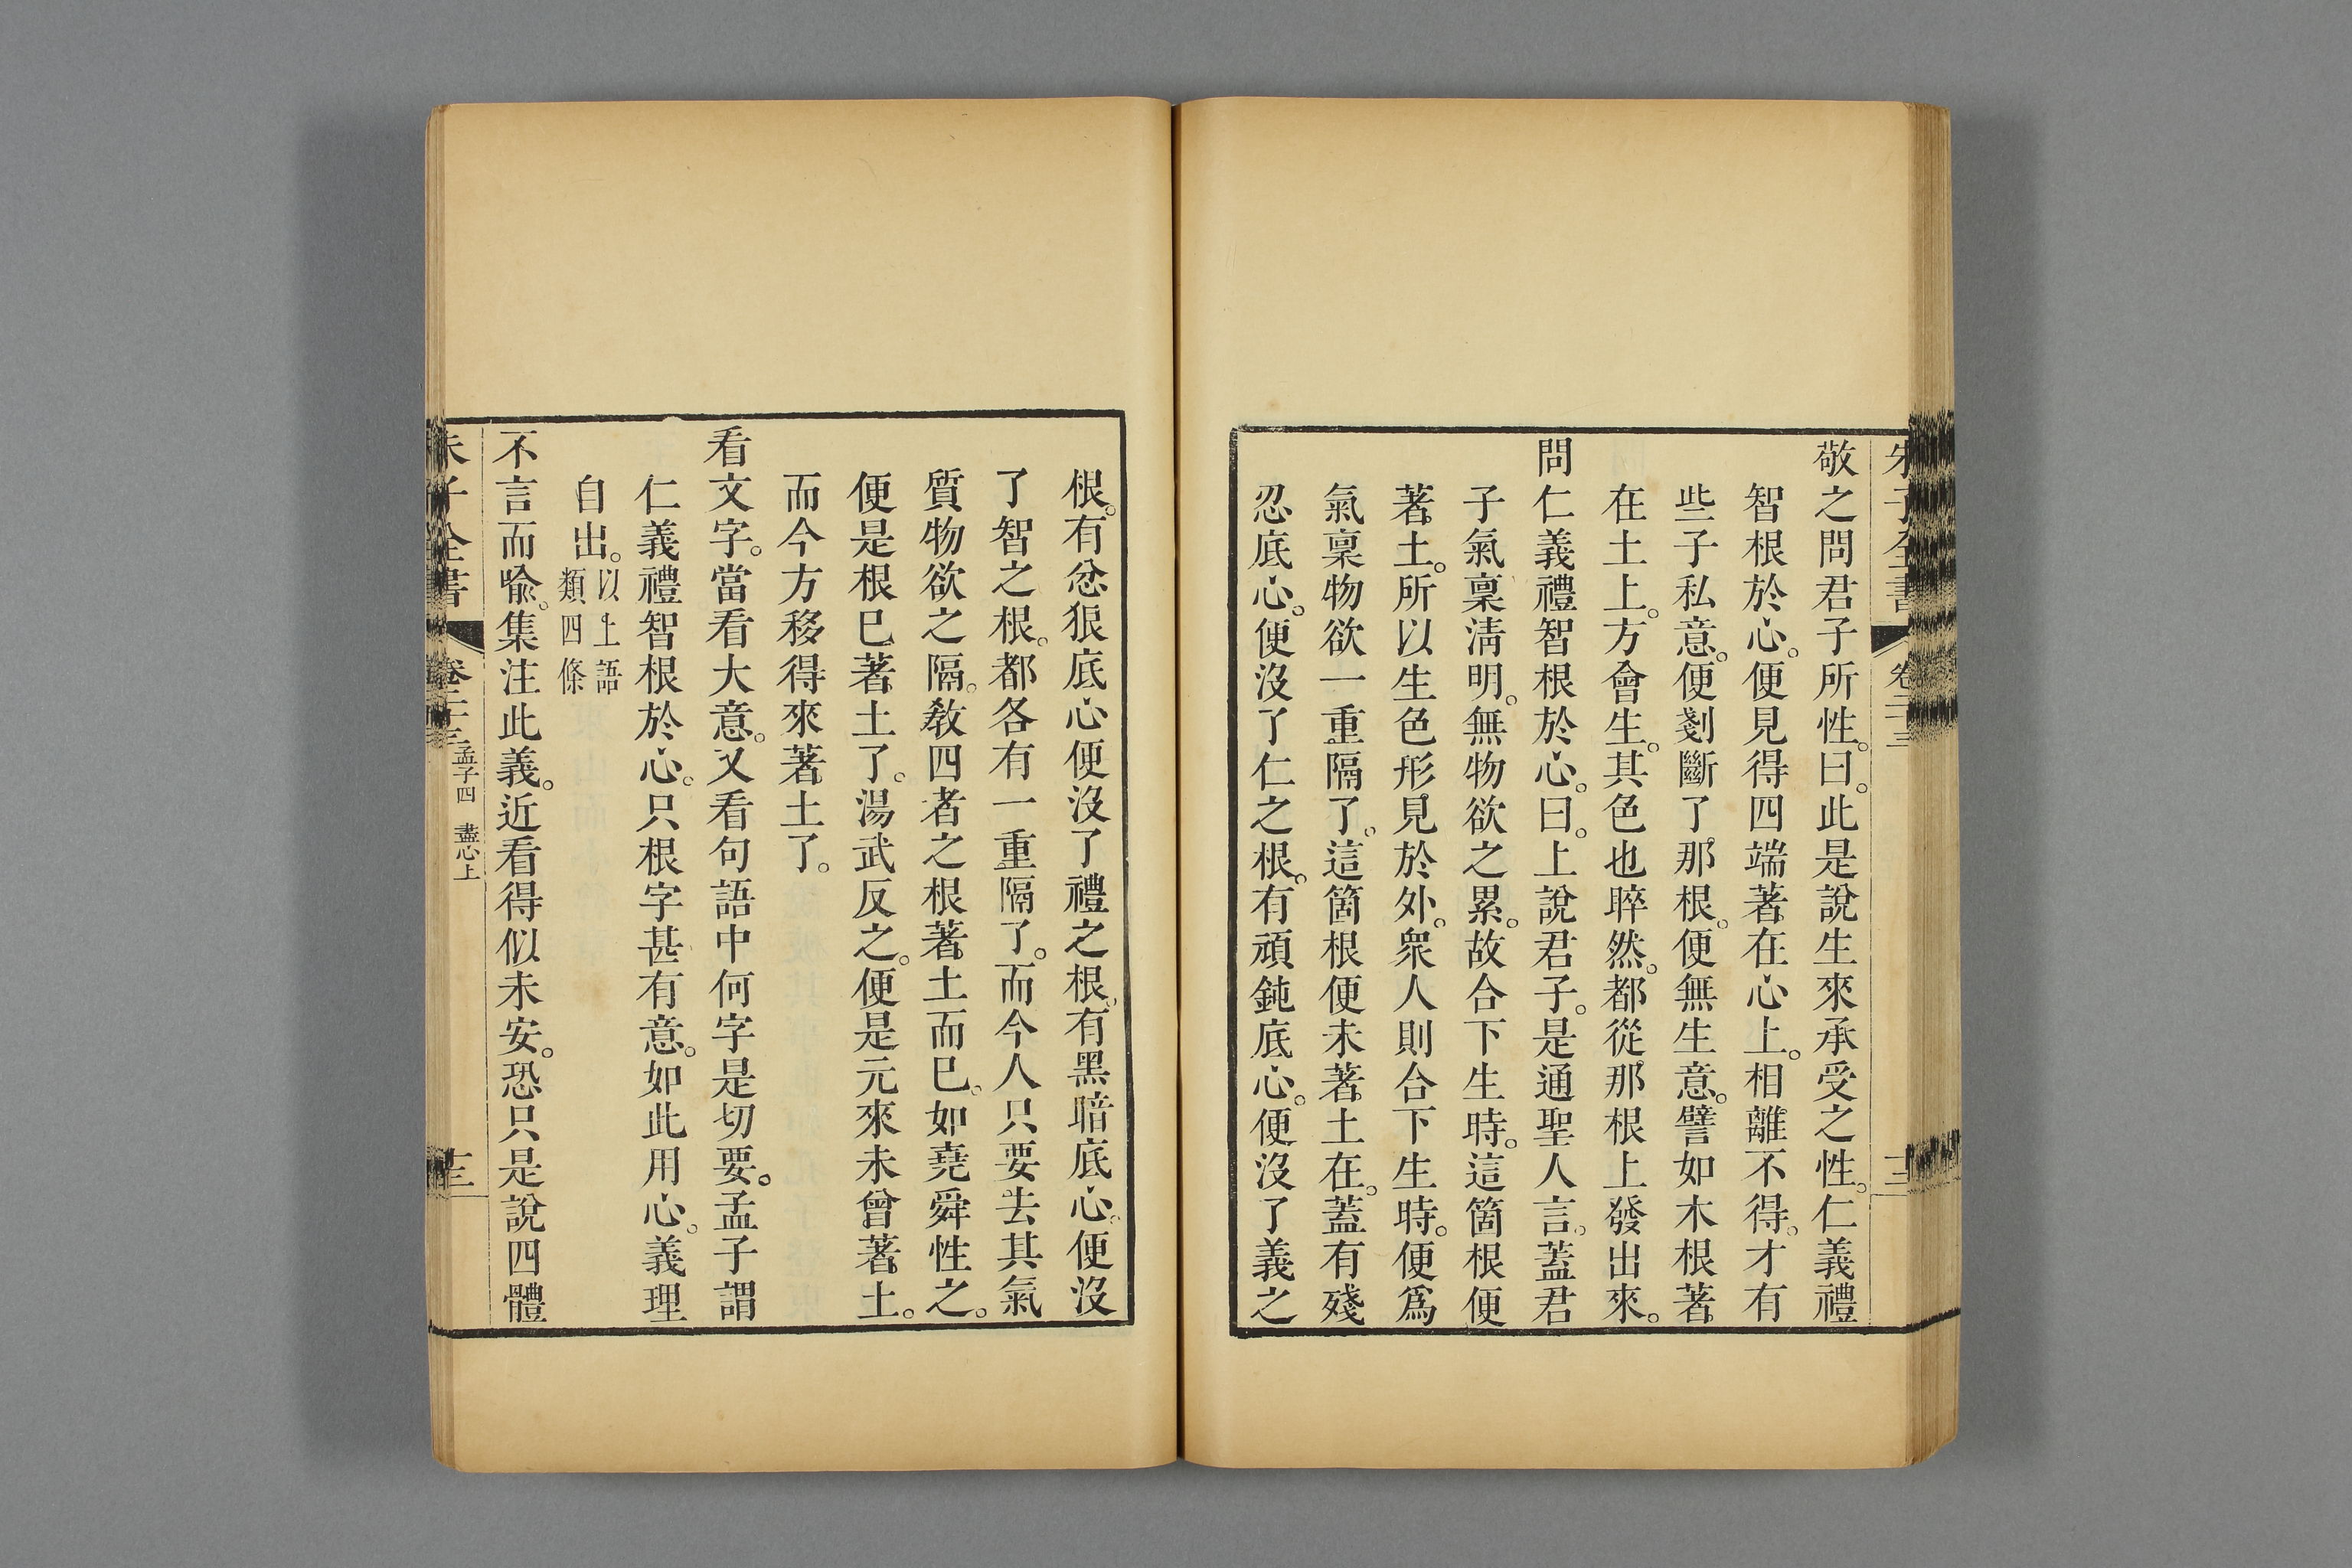 朱子全書 卷二十三
敬之問君子所性。曰。此是說生來承受之性。仁義禮
智根於心。便見得四端著在心上。相離不得。才有
些子私意。便剗斷了那根。便無生意。譬如木根著
在土上。方會生。其色也睟然。都從那根上發出來。
問仁義禮智根於心。曰。上說君子。是通聖人言。蓋君
子氣稟淸明。無物欲之累。故合下生時。這箇根便
著土。所以生色形見於外。衆人則合下生時。便爲
氣稟物欲一重隔了。這箇根便未著土在。蓋有殘
忍底心。便沒了仁之根。有頑鈍底心。便沒了義之
根。有忿狠底心便沒了禮之根。有黑暗底心。便沒
了智之根。都各有一重隔了。而今人只要去其氣
質物欲之隔。敎四者之根著土而已。如堯舜性之。
便是根已著土了。湯武反之。便是元來未曾著土。
而今方移得來著土了。
看文字。當看大意。又看句語中何字是切要。孟子謂
仁義禮智根於心。只根字甚有意。如此用心。義理
自出。以上語
類四條
不言而喻。集注此義。近看得似未安。恐只是說四體
朱子全書 卷二十三 孟子四 盡心上 十三